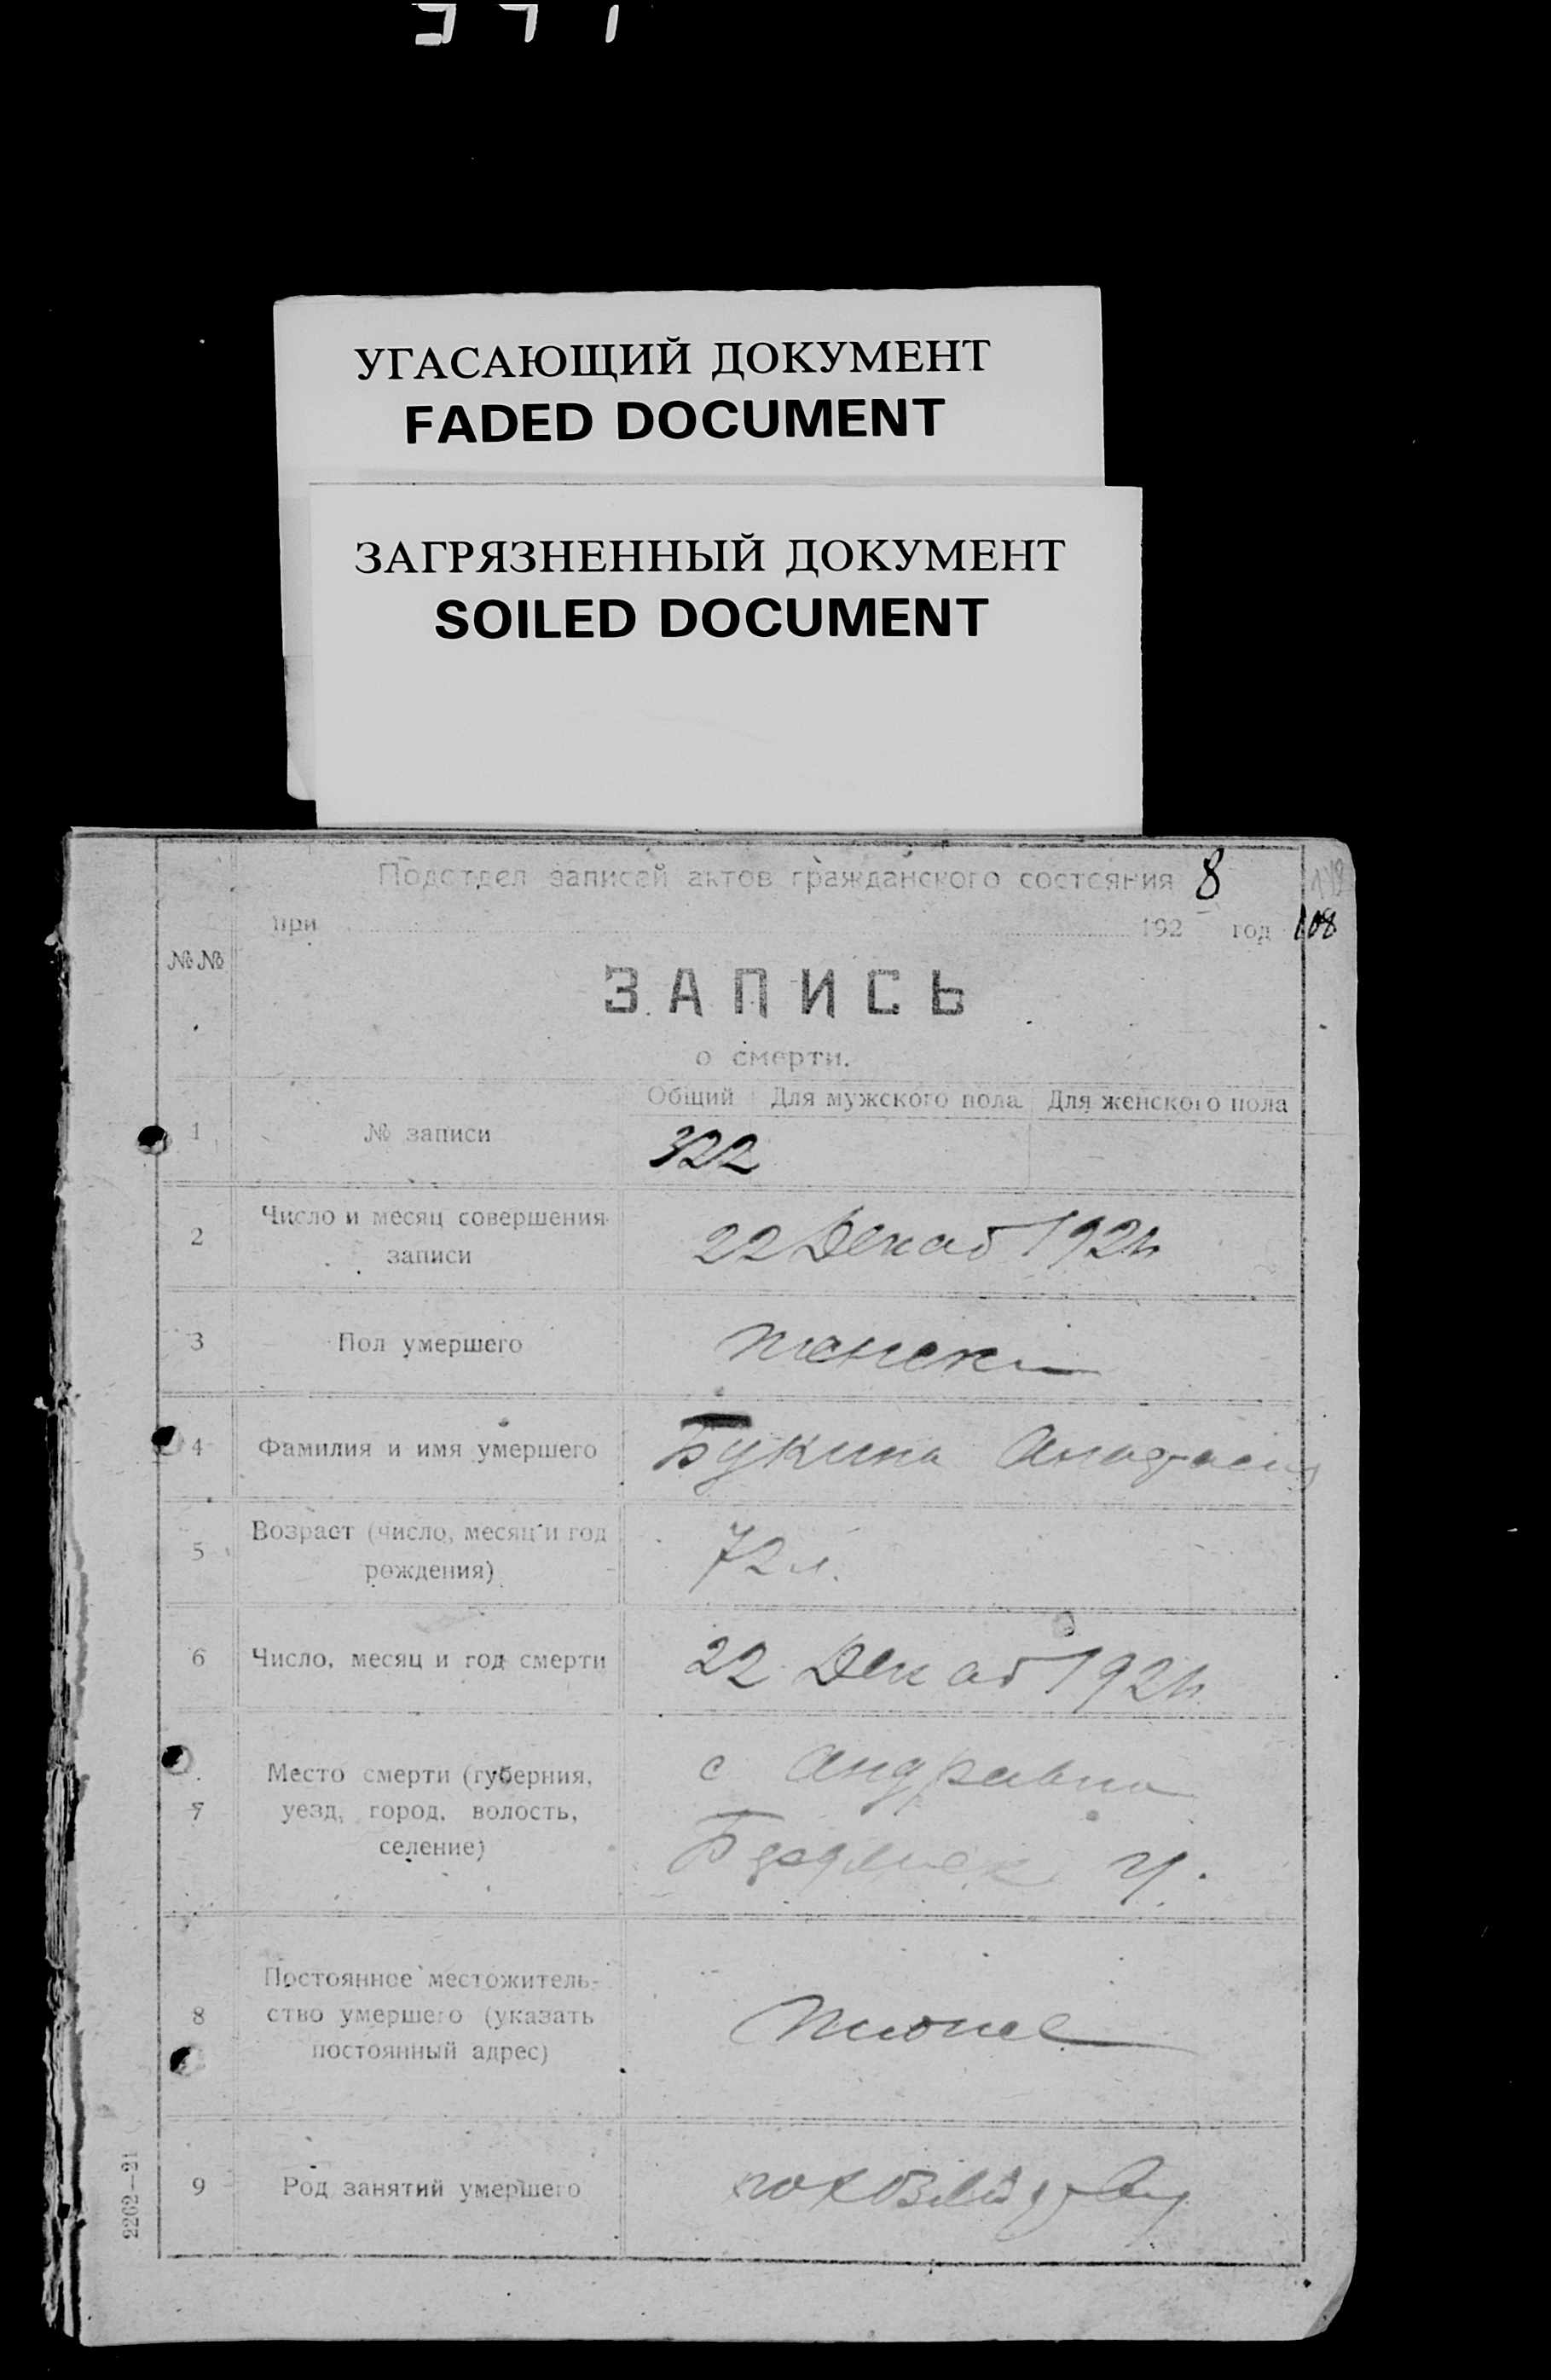 УГАСАЮЩИЙ ДОКУМЕНТ
FADED DOCUMENT
ЗАГРЯЗНЕННЫЙ ДОКУМЕНТ
SOILED DOCUMENT
Подотдел записей актов гражданского состояния 8
при 192 год 108
№№
ЗАПИСЬ
о смерти.
Общий Для мужского пола Для женского пола
1 № записи 322
2 Число и месяц совершения
записи
22 Декаб 192
3 Пол умершего
4 Фамилия и имя умершего Букина
5 Возраст (число, месяц и год
рождения)
72 л.
6 Число, месяц и год смерти 22 Декаб 192
7 Место смерти (губерния,
уезд, город, волость,
селение)
с
8 Постоянное местожитель-
ство умершего (указать
постоянный адрес)
9 Род занятий умершего
2262—21